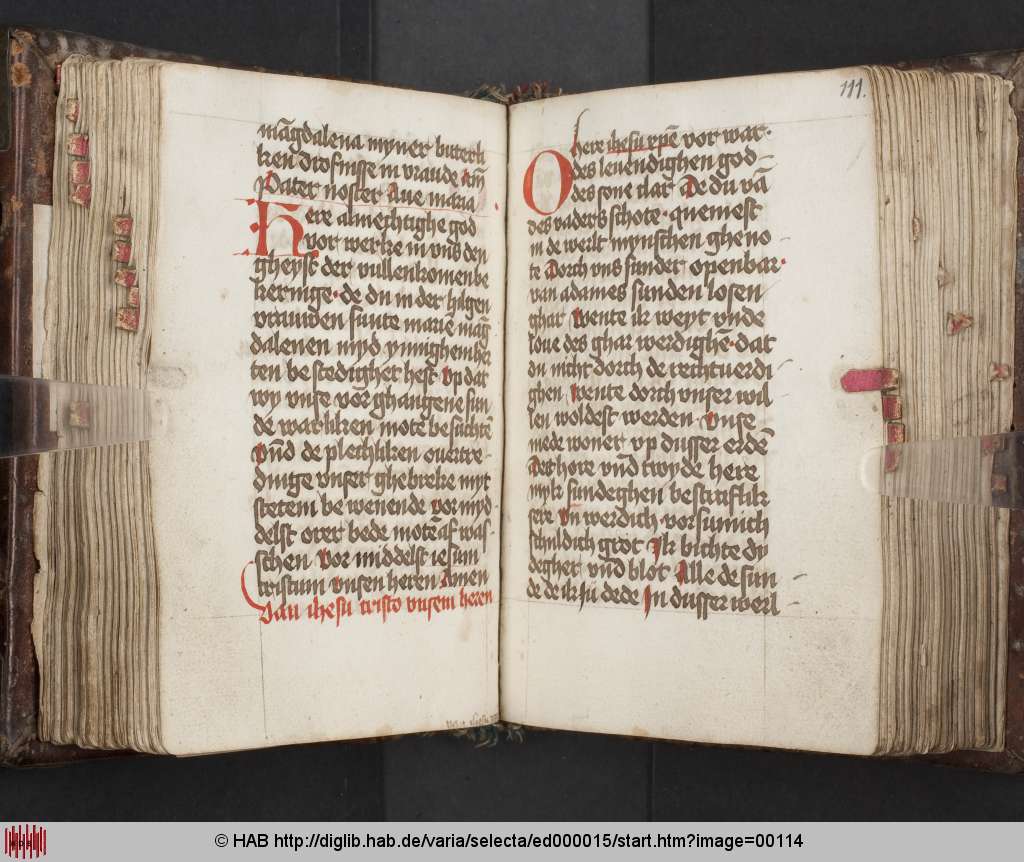 māgdalena myner bitterli
ken drofnisse in vraude Am̄
Pater noster Aue maria
Here almechtighe god
vor werke in vns den
gheyst der vullenkomen be
keringe· de du in der hilgen
vrauwen sunte marie mag̃
dalenen myd ynnighem her
ten be stedighet hest Vp dat
wy vnse vor ghangene sun
de warliken mote besuchtē
Vn̄d de plechliken ouertre-
dinge vnser ghebreke myt
stetem be wenende vor myd
delst orer bede motē af was-
schen Vor middelst iesum
cristum vnsen heren Amen
Van ihesu cristo vnsem heren
111.
O here ihesu xp̄e vor war·
des leuendighen god-
des sone clar De du vā
des vaders schote· quemest
in de werlt mynschen gheno
te Dorch vns sunder openbar·
van adames sunden losen
ghar Wente ik weyt vnde
loue des ghar werdighē· dat
du nicht dorch de rechtuerdi
ghen Wente dorch vnser wil
len woldest werden· Vnse
mede woner vp dusser erdē
Aet hore vn̄d twyde here
myk sundeghen bestraflik
sere Vn̄ werdich vorsumich
schuldich grot Ik bichte dy
degher vn̄d blot Alle de sun
de de ik ju dede In dusser werl
© HAB http://diglib.hab.de/varia/selecta/ed000015/start.htm?image=00114